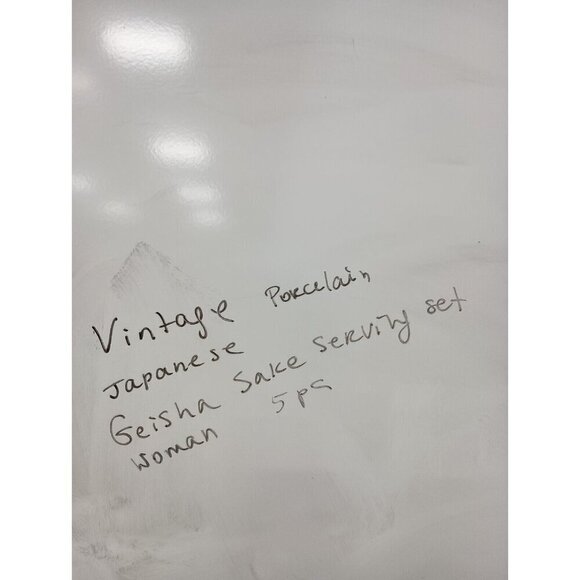 Vintage Porcelain
Japanese
Geisha Sake Serving set
woman 5 pc